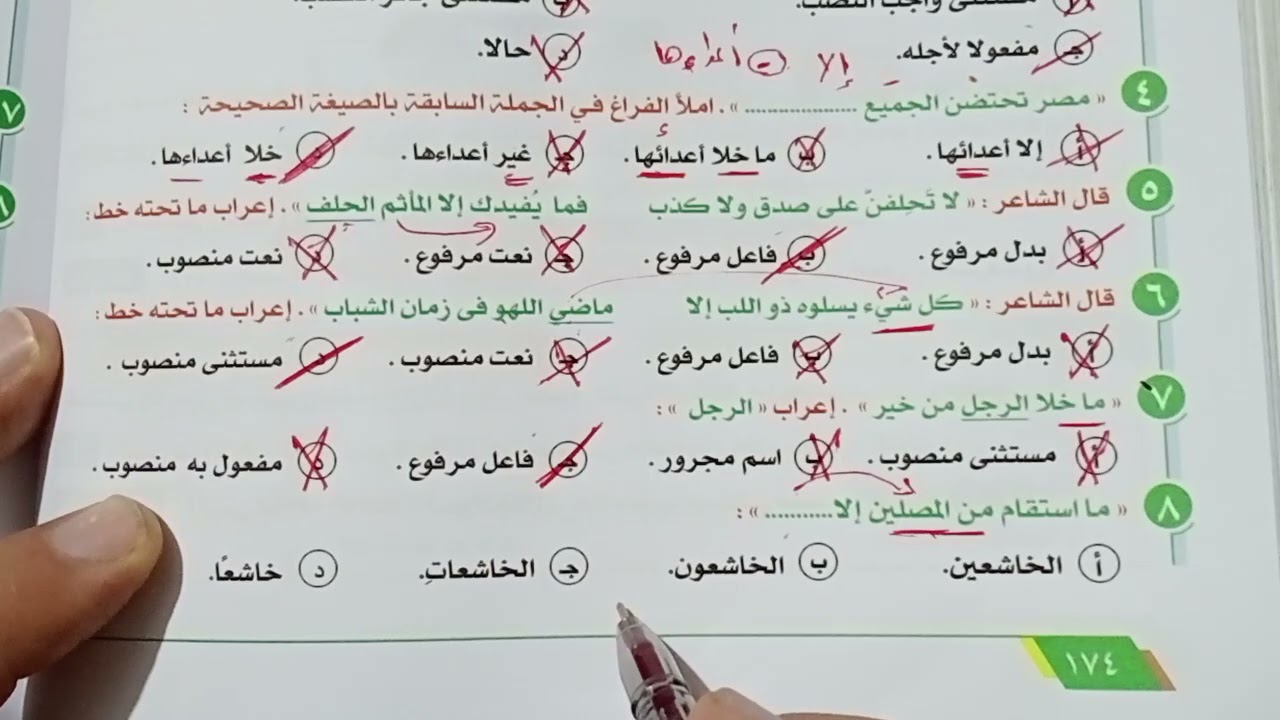 مستثنى واجب النصب.
جـ مفعولا لأجله. د حالا.
إلا أعداءها
٤ « مصر تحتضن الجميع .................. » . املأ الفراغ في الجملة السابقة بالصيغة الصحيحة :
أ إلا أعدائها. ب ما خلا أعدائها. جـ غير أعداءها. د خلا أعداءها.
٥ قال الشاعر : « لا تَحلِفنّ على صدق ولا كذب فما يُفيدك إلا المأثم الحلف » . إعراب ما تحته خط :
أ بدل مرفوع. ب فاعل مرفوع. جـ نعت مرفوع. د نعت منصوب.
٦ قال الشاعر : « كل شيء يسلوه ذو اللب إلا ماضي اللهو فى زمان الشباب » . إعراب ما تحته خط :
أ بدل مرفوع. ب فاعل مرفوع. جـ نعت منصوب. د مستثنى منصوب.
٧ « ما خلا الرجل من خير » . إعراب « الرجل » :
أ مستثنى منصوب. ب اسم مجرور. جـ فاعل مرفوع. د مفعول به منصوب.
٨ « ما استقام من المصلين إلا........... » :
أ الخاشعين. ب الخاشعون. جـ الخاشعاتِ. د خاشعًا.
١٧٤